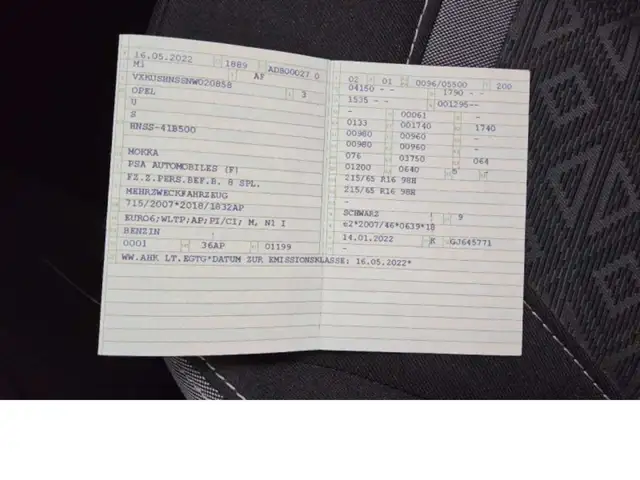 16.05.2022 1889 ADB00027 0
M1 AF
VXKUSHNSSNW020858 3
OPEL
U
S
HNSS-41B500
MOKKA
PSA AUTOMOBILES (F)
FZ.Z.PERS.BEF.B. 8 SPL.
MEHRZWECKFAHRZEUG
715/2007*2018/1832AP
EURO6;WLTP;AP;PI/CI; M, N1 I
BENZIN
0001 36AP 01199
WW.AHK LT.EGTG*DATUM ZUR EMISSIONSKLASSE: 16.05.2022*
02 01 0096/05500 200
04150 - - 1790 - -
1535 - - 001295--
- 00061 -
0133 001740 1740
00980 00960 -
00980 00960 -
076 03750 064
01200 0640 5
215/65 R16 98H
215/65 R16 98H
-
SCHWARZ 9
e2*2007/46*0639*18
14.01.2022 K GJ645771
-